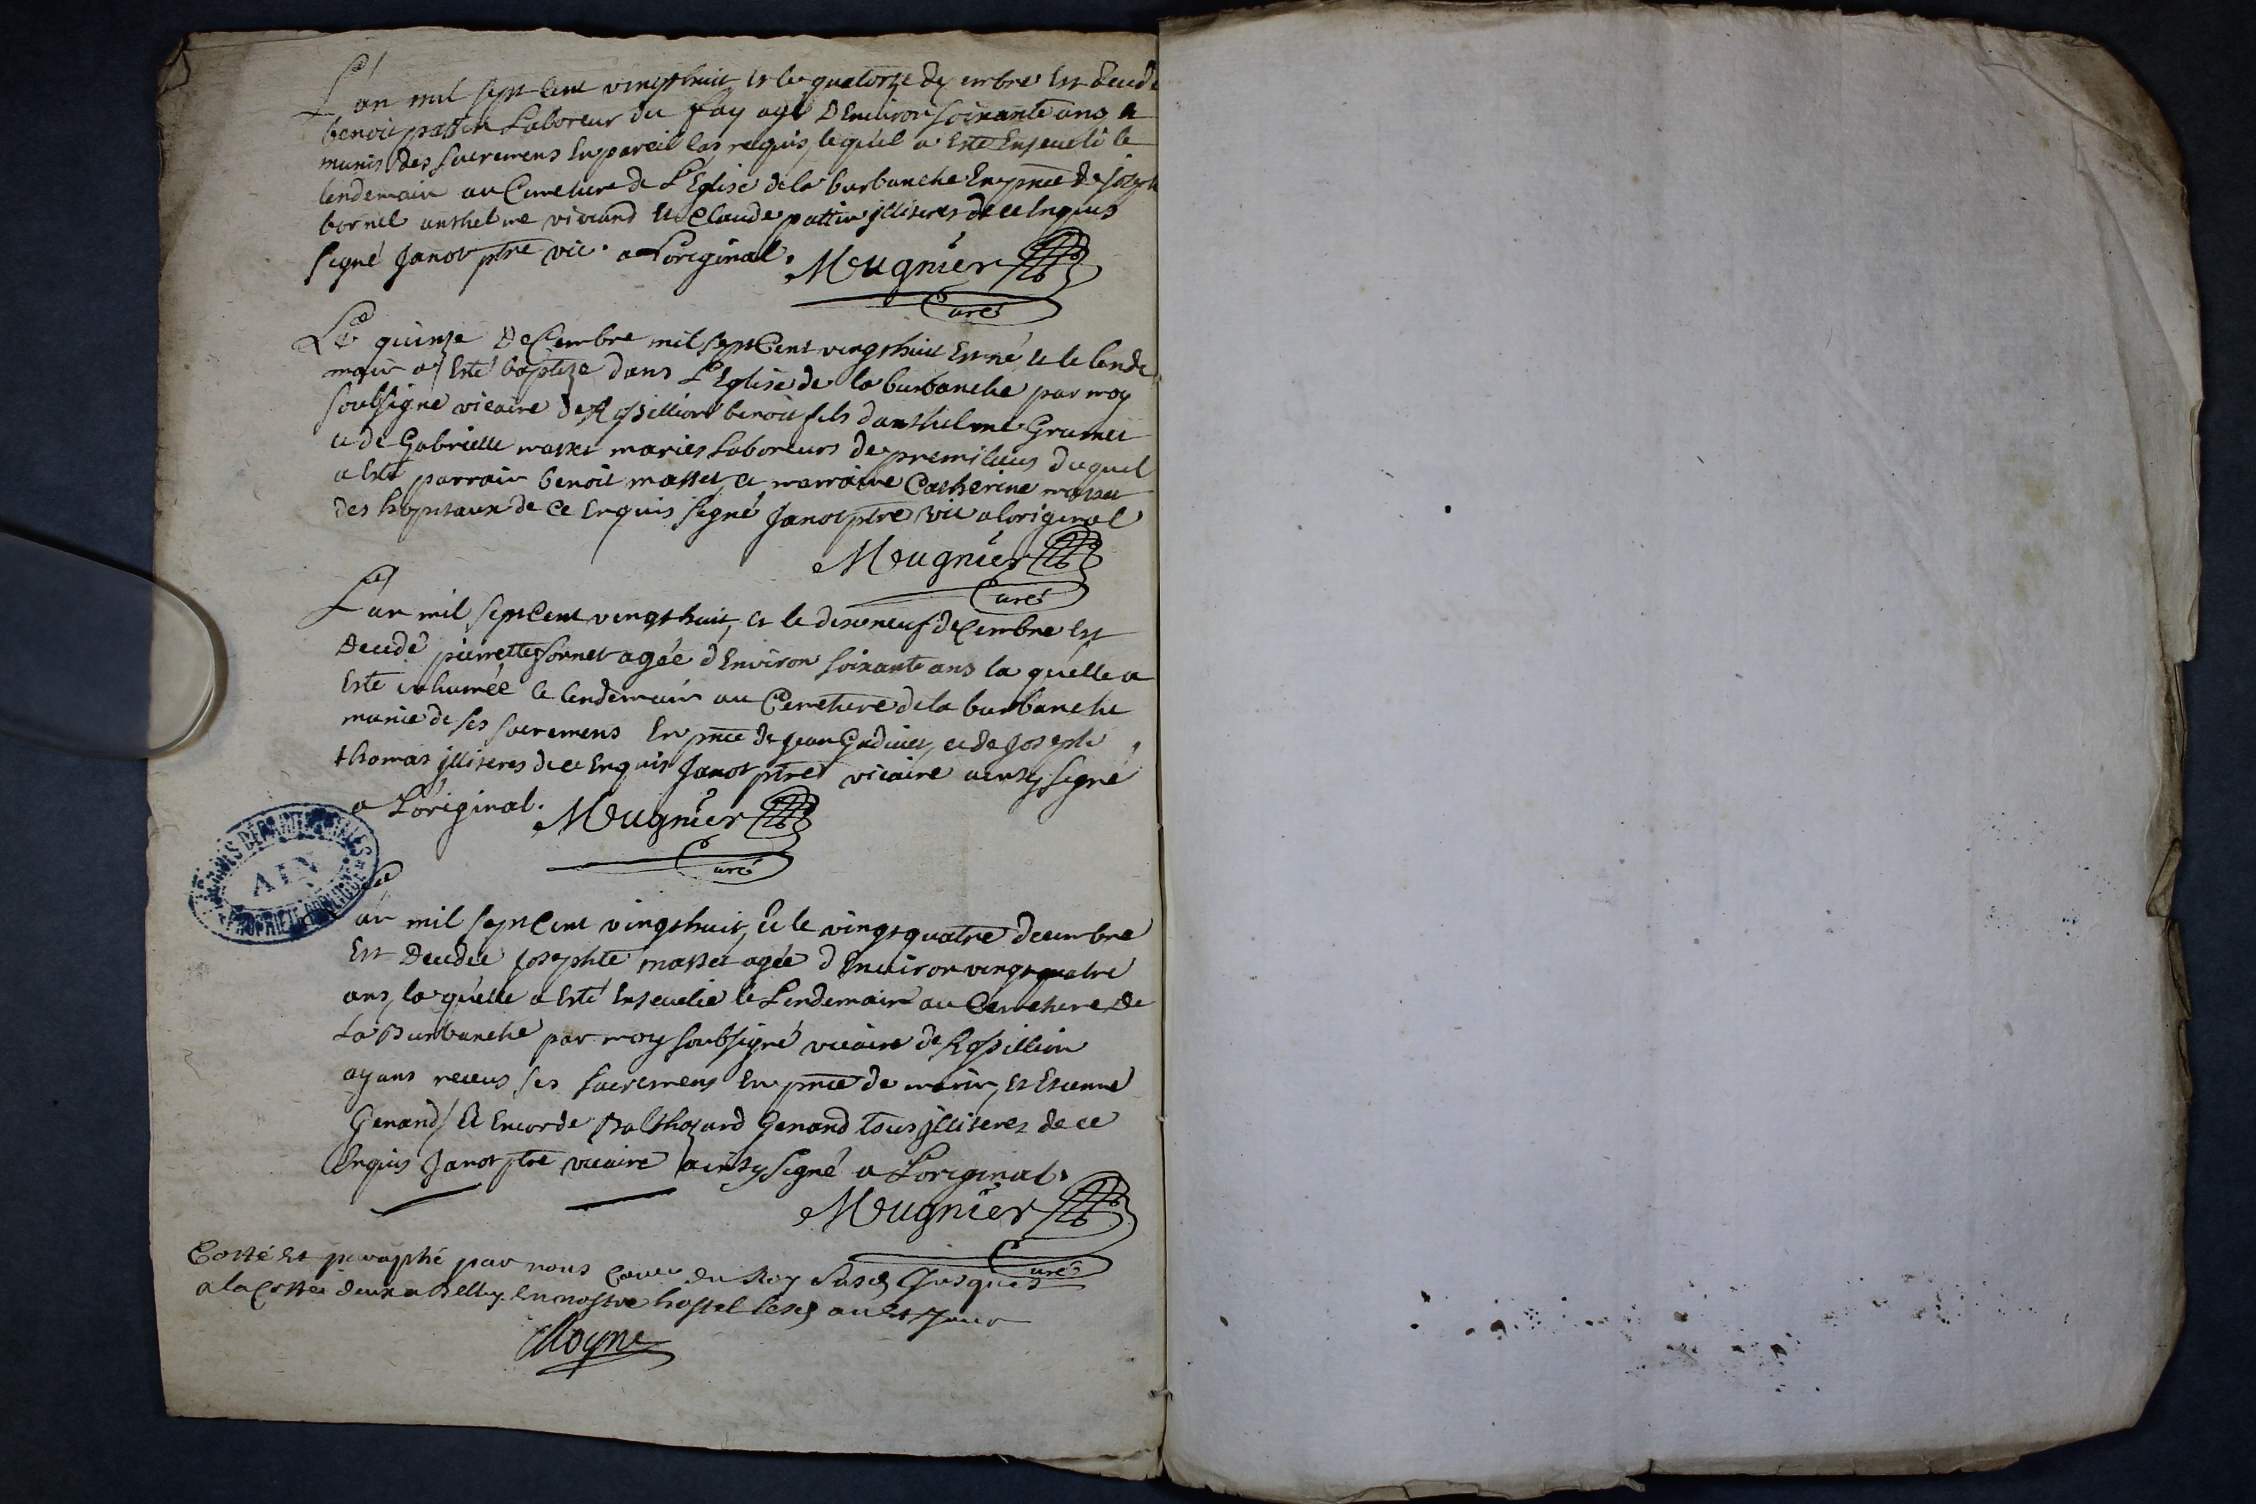 L'an mil sept cent vingthuit et le quatorze decembre est decede
benoit pattin Laboreur du fay agé d'Environ soixante ans
munis des sacremens En pareil cas requis, lequel a Esté Enseveli le
lendemain au Cimetiere de L'Eglise de la burbanche En pnce de joseph
bornel anthelme viviand et Claude pattin jlliteres de ce Enquis
signé Janot ptre vic. a Loriginal. Meugnier
Curé
Le quinze Decembre mil sept Cent vingthuit Est né et le lende
main a Esté baptize dans L'Eglise de la burbanche par moy
soubsigne vicaire de Rossillion benoit fils danthelme Grumet
et de Gabrielle masset mariés Laboreurs de premilieus duquel
a Esté parrain benoit masset, et marraine Catherine masset
des hopitaux de ce Enquis signé Janot ptre vic a loriginal
Meugnier
Curé
L'an mil sept Cent vingthuit, et le dixneuf decembre Est
Decedé pierrette agée d'Environ soixante ans la quelle a
Esté inhumée le lendemain au Cemetiere de la burbanche
munie de ses sacremens En pnce de jean et de Joseph
thomas jlliteres de ce Enquis Janot ptre vicaire ainsy signé
a L'original. Meugnier
Curé
ARCHIVES DÉPARTEMENTALES
AIN
PROPRIÉTÉ PUBLIQUE
L'an mil sept Cent vingthuit, et le vingtquatre decembre
Est Decedee josephte masset agée d'Environ vingtquatre
ans, la quelle a Esté Ensevelie le Lendemain au Cemetiere de
La Burbanche par moy soubsigné vicaire de Rossillion
ayant receus ses sacremens En pnce de marin, et Etienne
Genand, et Encor de Balthazard Genand tous jlliteres de ce
Enquis Janot ptre vicaire ainsy signé a L'original.
Meugnier
Curé
Cotté et paraphé par nous du Roy Jusques
a la Cotte deux a Belley En nostre hostel les an et Jour
Moyne